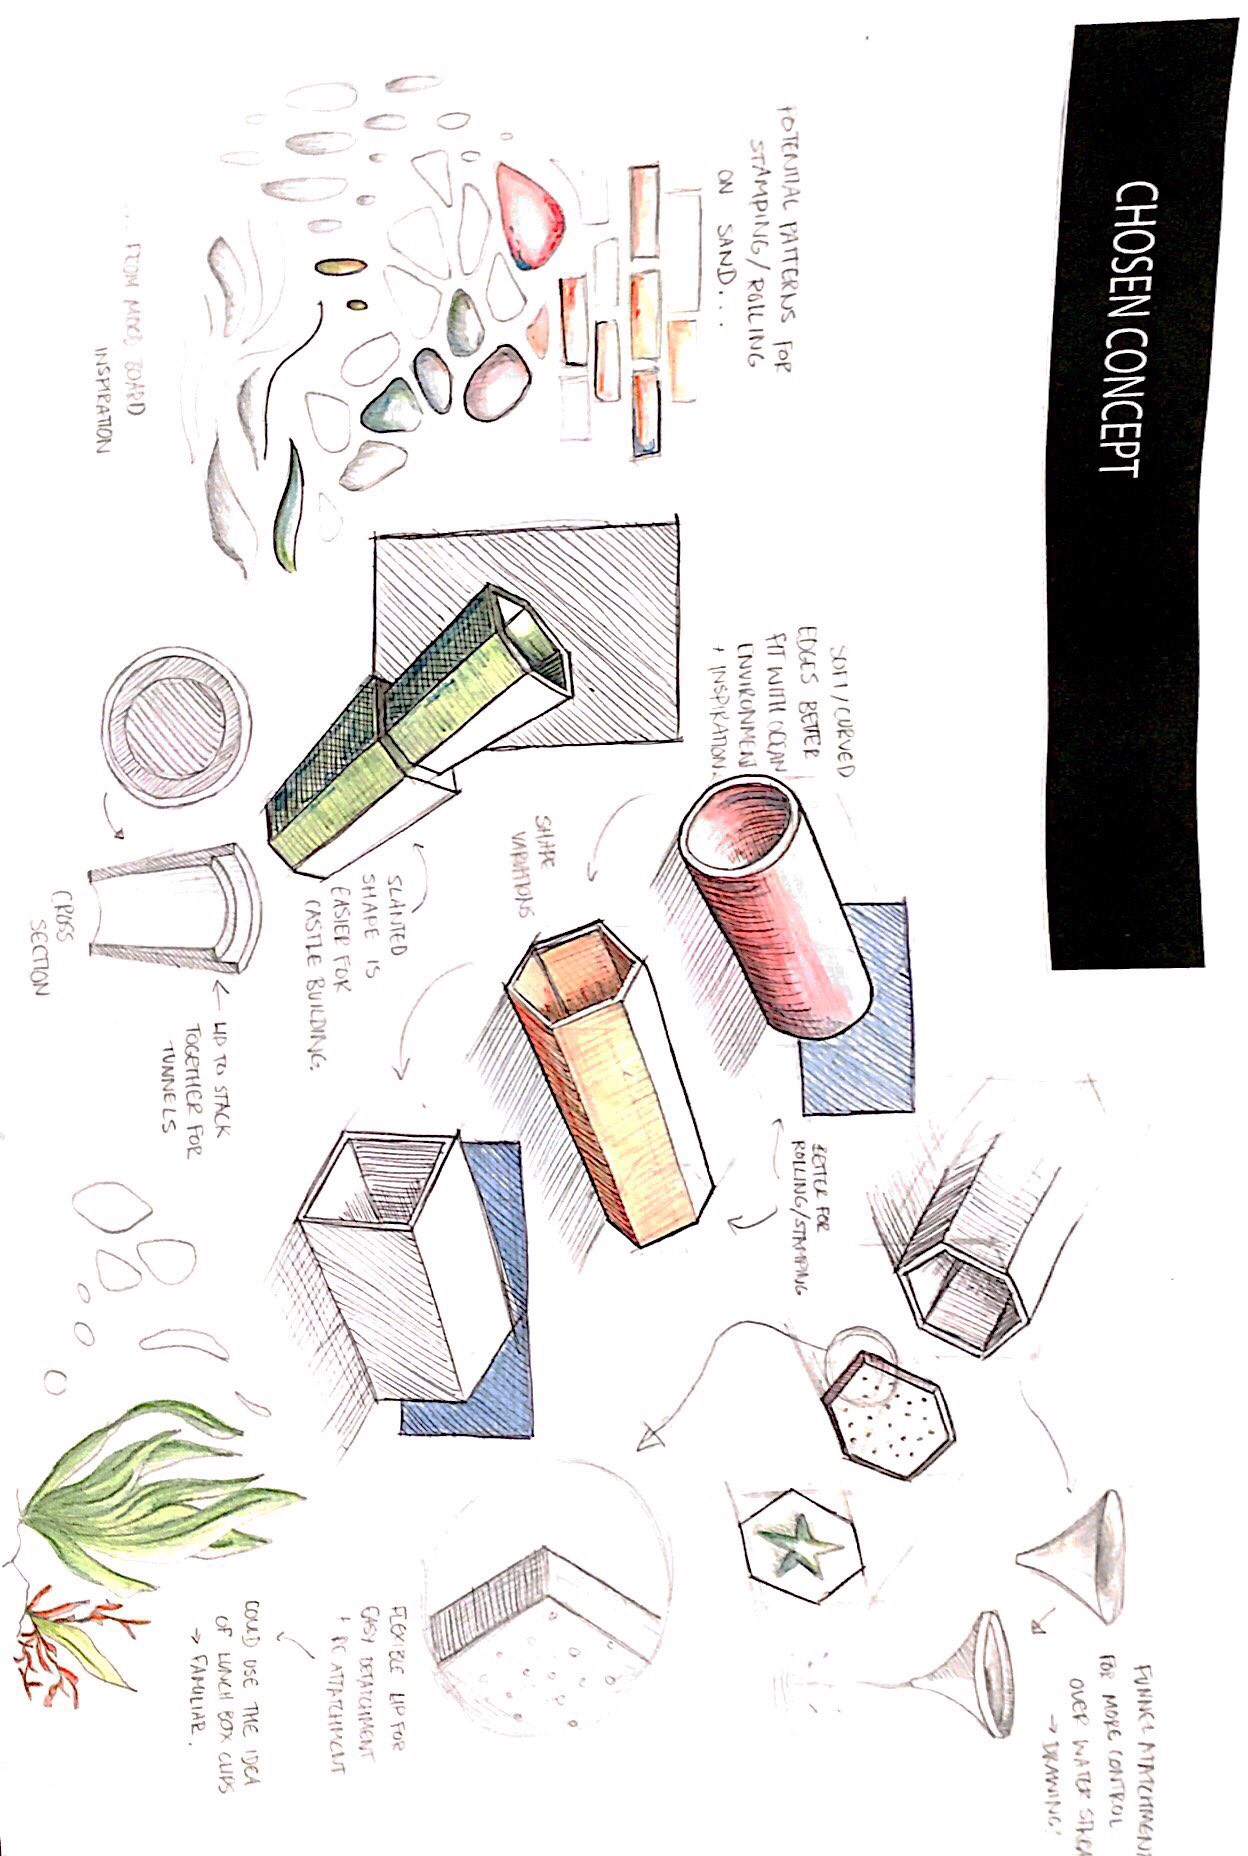 CHOSEN CONCEPT
FUNNEL ATATCHMENT
FOR MORE CONTROL
OVER WATER
→ DRAWING!
SOFT/CURVED
EDGES BETTER
FIT WITH OCEAN
ENVIRONMENT
+ INSPIRATION.
BETTER FOR
ROLLING/STAMPING
POTENTIAL PATTERNS FOR
STAMPING/ROLLING
ON SAND...
SHAPE
VARIATIONS
SLANTED
SHAPE IS
EASIER FOR
CASTLE BUILDING.
FLEXIBLE LIP FOR
EASY DETATCHMENT
+ RE ATTATCHMENT
COULD USE THE IDEA
OF LUNCH BOX CLIPS
→ FAMILIAR.
LIP TO STACK
TOGETHER FOR
TUNNELS
CROSS
SECTION
... FROM MOOD BOARD
INSPIRATION